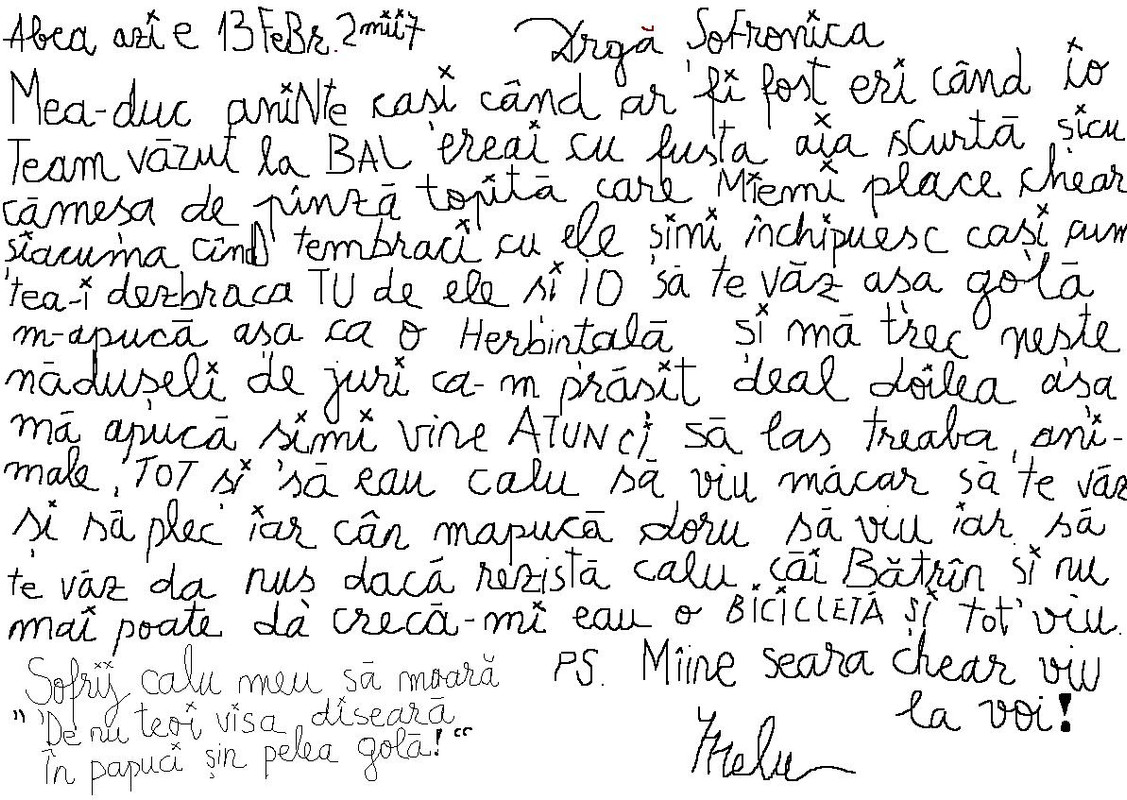 Abea azi e 13 FeBr. 2mii7 Drgă Sofronica
Mea-duc aniNte casi când ar fi fost eri când io
Team văzut la BAL ereai cu fusta aia sCurtă șicu
cămesa de pinză topită care Miemi place chear
siacuma cind tembraci cu ele șimi închipuesc casi cum
tea-i dezbraca TU de ele si IO să te văz asa golă
m-apucă asa ca o Herbintală Și mă trec neste
nădușeli de juri ca-m prăsit deal doilea asa
mă apucă simi vine ATUNCI să las treaba, ani-
male, TOT si să eau calu să viu măcar să te văz
și să plec iar cân mapucă doru să viu iar să
te văz da nus dacă rezistă calu căi Bătrîn și nu
mai poate dă crecă-mi eau o BICICLETĂ ȘI tot viu.
PS. Mîine seara chear viu
la voi!
Melu
Sofrij calu meu să moară
"De nu teoi visa diseară
În papuci șin pelea golă!"